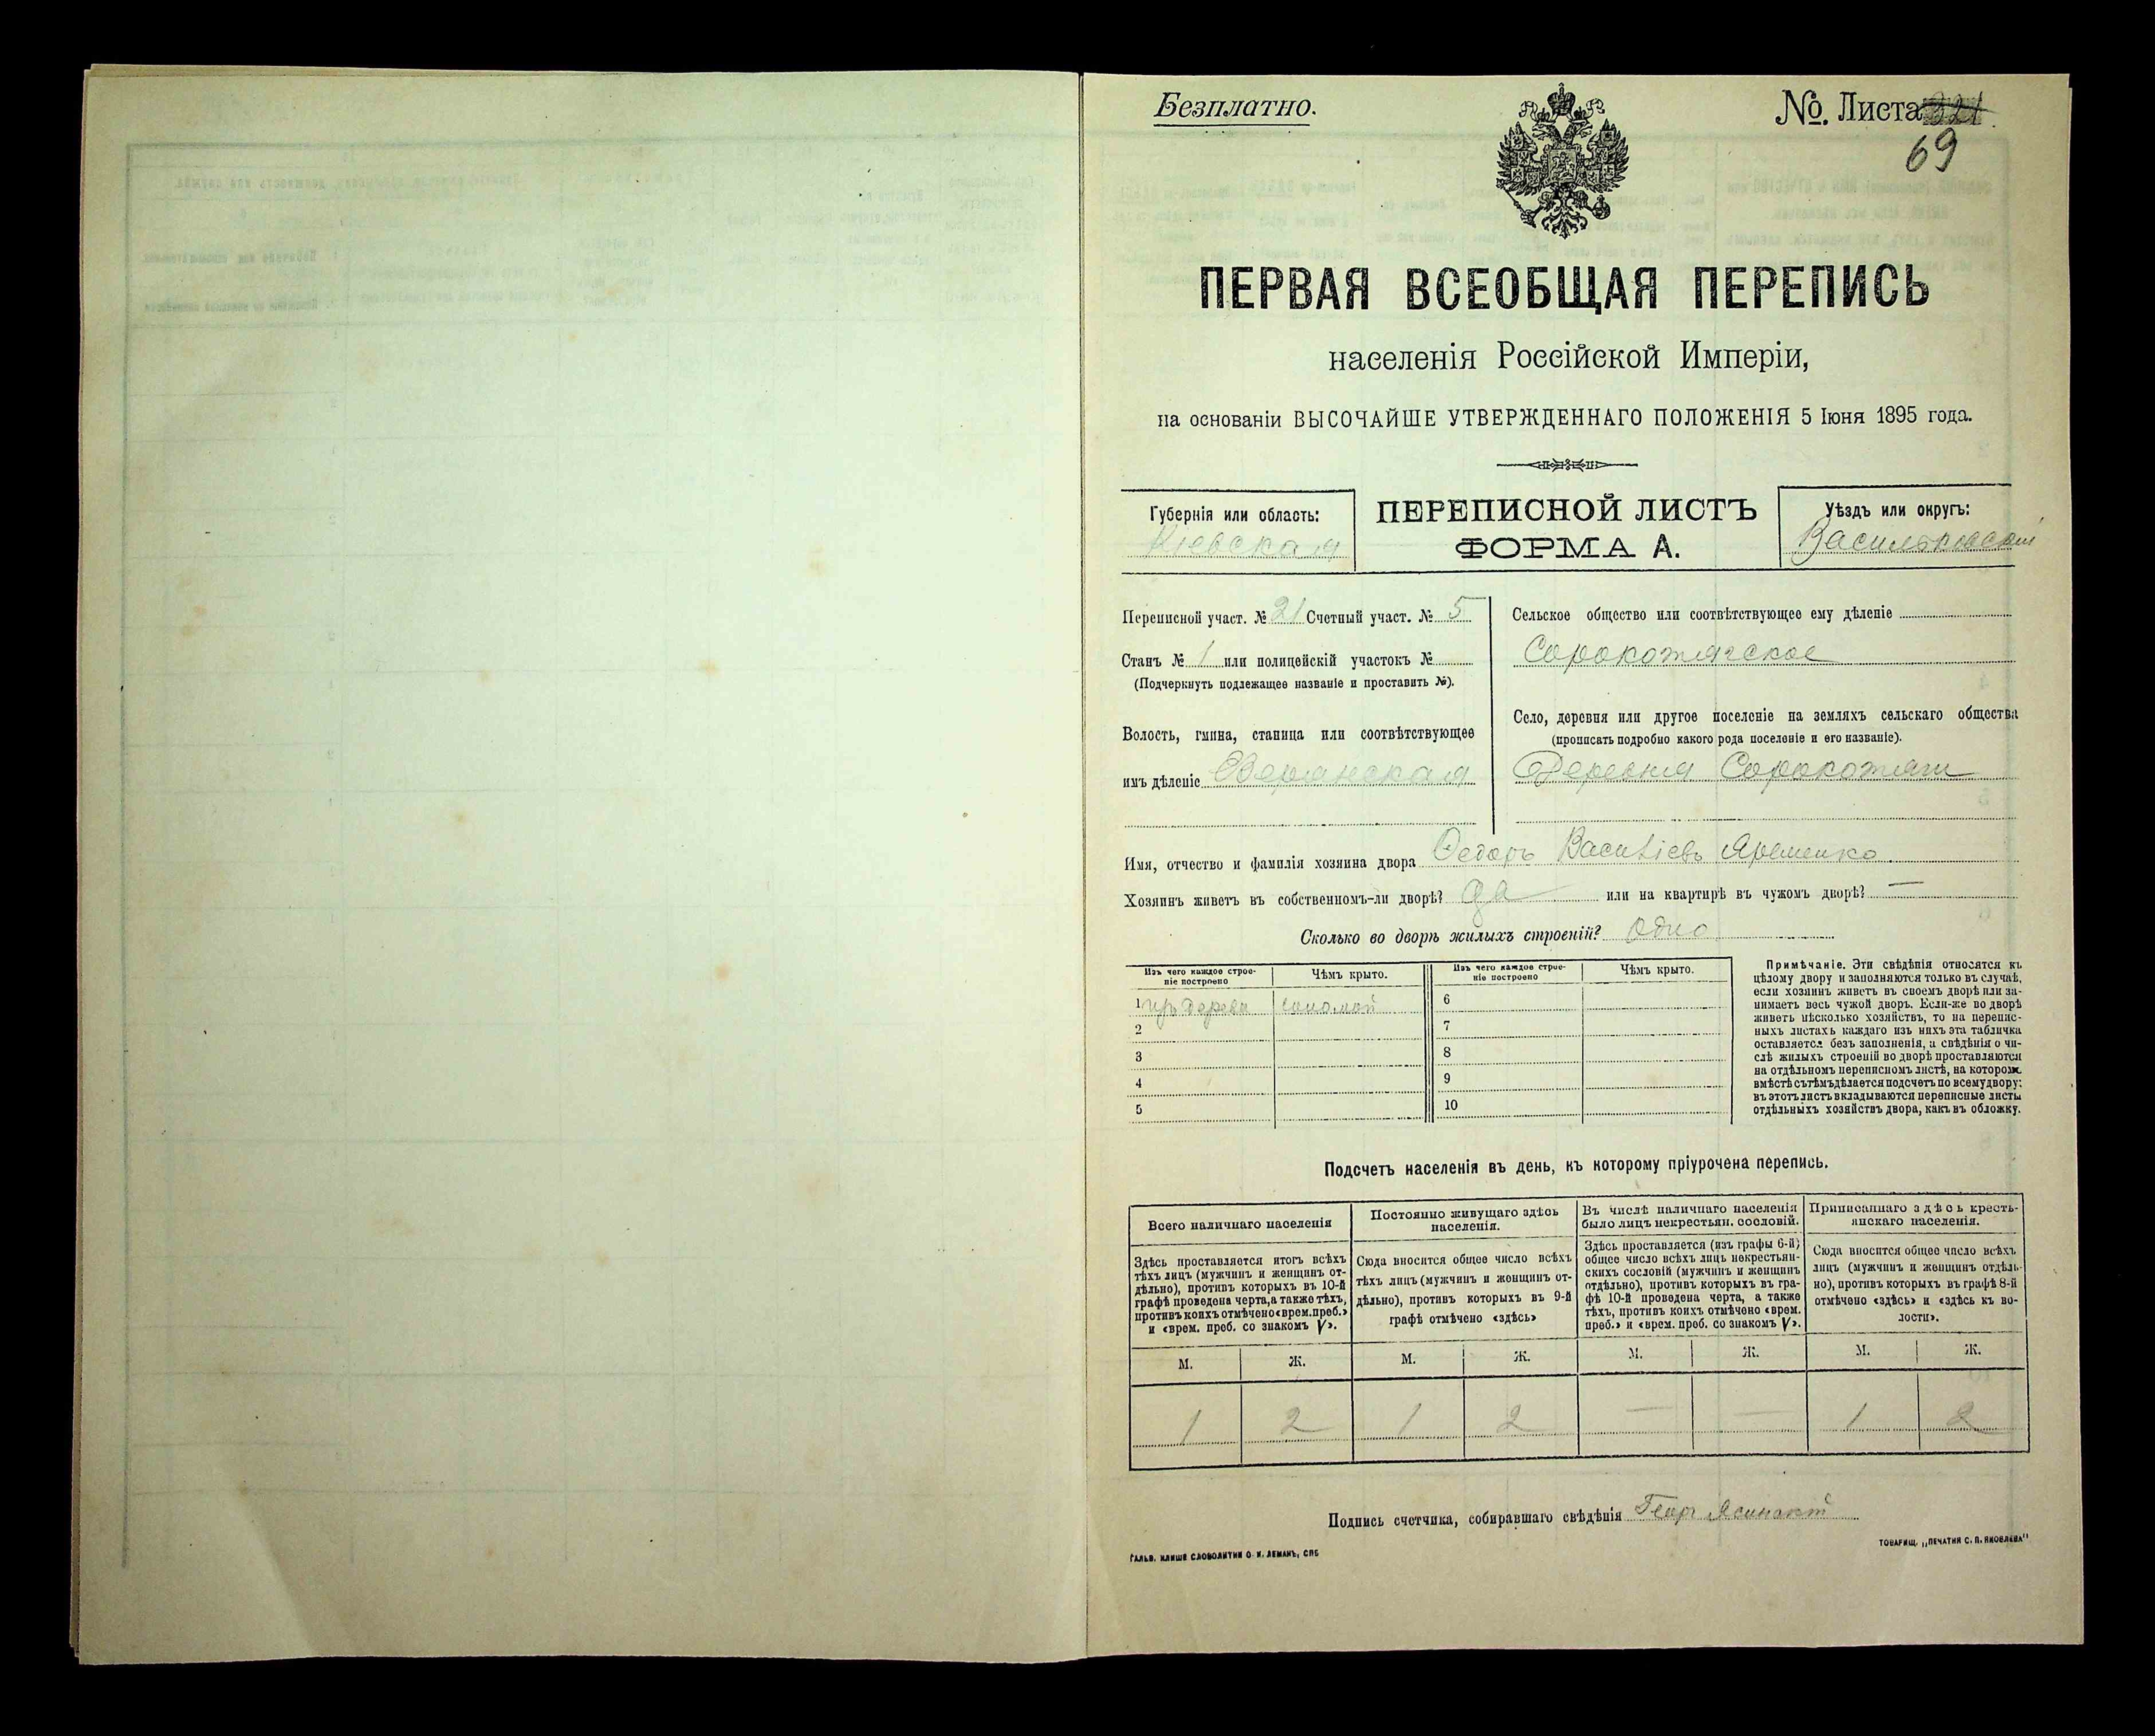 Безплатно.
№. Листа
69
ПЕРВАЯ ВСЕОБЩАЯ ПЕРЕПИСЬ
населенія Россійской Имперіи,
на основаніи ВЫСОЧАЙШЕ УТВЕРЖДЕННАГО ПОЛОЖЕНІЯ 5 Іюня 1895 года.
Губернія или область:
Кіевская
ПЕРЕПИСНОЙ ЛИСТЪ
ФОРМА А.
Уѣздъ или округъ:
Васильковскій
Переписной участ. № 21 Счетный участ. № 5
Станъ № 1 или полицейскій участокъ №
(Подчеркнуть подлежащее названіе и проставить №).
Волость, гмина, станица или соотвѣтствующее
имъ дѣленіе
Сельское общество или соотвѣтствующее ему дѣленіе
Сорокотягское
Село, деревня или другое поселеніе на земляхъ сельскаго общества
(прописать подробно какого рода поселеніе и его названіе).
Деревня Сорокотяги
Имя, отчество и фамилія хозяина двора Федоръ Василіевъ Яременко.
Хозяинъ живетъ въ собственномъ-ли дворѣ? да или на квартирѣ въ чужомъ дворѣ? —
Сколько во дворѣ жилыхъ строеній? Одно
Изъ чего каждое строе-
ніе построено
Чѣмъ крыто.
Изъ чего каждое строе-
ніе построено
Чѣмъ крыто.
1 изъ дерева соломой
2
3
4
5
6
7
8
9
10
Примѣчаніе. Эти свѣдѣнія относятся къ
цѣлому двору и заполняются только въ случаѣ,
если хозяинъ живетъ въ своемъ дворѣ или за-
нимаетъ весь чужой дворъ. Если-же во дворѣ
живетъ нѣсколько хозяйствъ, то на перепис-
ныхъ листахъ каждаго изъ нихъ эта табличка
оставляется безъ заполненія, и свѣдѣнія о чи-
слѣ жилыхъ строеній во дворѣ проставляются
на отдѣльномъ переписномъ листѣ, на которомъ
вмѣстѣ съ тѣмъ дѣлается подсчетъ по всему двору;
въ этотъ листъ вкладываются переписные листы
отдѣльныхъ хозяйствъ двора, какъ въ обложку.
Подсчетъ населенія въ день, къ которому пріурочена перепись.
Всего наличнаго населенія
Здѣсь проставляется итогъ всѣхъ
тѣхъ лицъ (мужчинъ и женщинъ от-
дѣльно), противъ которыхъ въ 10-й
графѣ проведена черта, а также тѣхъ,
противъ коихъ отмѣчено «врем. преб.»
и «врем. преб. со знакомъ V».
Постоянно живущаго здѣсь
населенія.
Сюда вносится общее число всѣхъ
тѣхъ лицъ (мужчинъ и женщинъ от-
дѣльно), противъ которыхъ въ 9-й
графѣ отмѣчено «здѣсь»
Въ числѣ наличнаго населенія
было лицъ некрестьян. сословій.
Здѣсь проставляется (изъ графы 6-й)
общее число всѣхъ лицъ некрестьян-
скихъ сословій (мужчинъ и женщинъ
отдѣльно), противъ которыхъ въ гра-
фѣ 10-й проведена черта, а также
тѣхъ, противъ коихъ отмѣчено «врем.
преб.» и «врем. преб. со знакомъ V».
Приписаннаго здѣсь кресть-
янскаго населенія.
Сюда вносится общее число всѣхъ
лицъ (мужчинъ и женщинъ отдѣль-
но), противъ которыхъ въ графѣ 8-й
отмѣчено «здѣсь» и «здѣсь къ во-
лости».
М. Ж. М. Ж. М. Ж. М. Ж.
1 2 1 2 — — 1 2
Подпись счетчика, собиравшаго свѣдѣнія
ГАЛЬВ. КЛИШЕ СЛОВОЛИТНИ О. И. ЛЕМАНЪ, СПБ
ТОВАРИЩ. „ПЕЧАТНЯ С. П. ЯКОВЛЕВА"